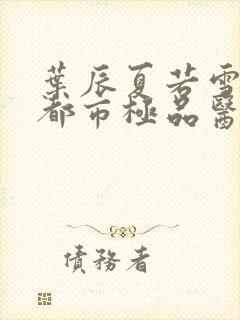 葉辰夏若雪
都市極品醫
債務者